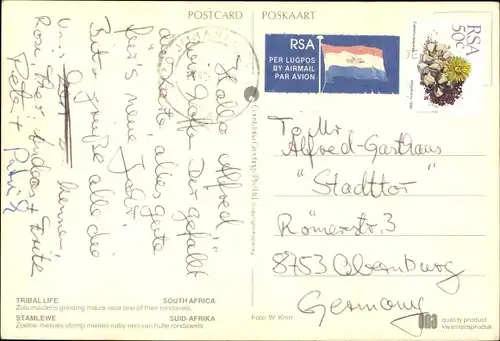 POSTCARD POSKAART
RSA
PER LUGPOS
BY AIRMAIL
PAR AVION
RSA
50c
Hallo Alfred
Der gefällt
alles gute
für's neue Jahr
Bitte grüße alle die
kennen
Rosi, Theo, Andreas + Fritz
Peter +
To Mr.
Alfred-Gasthaus
"Stadttor"
Römerstr. 3
8753 Obernburg
Germany
TRIBAL LIFE SOUTH AFRICA
Zulu maidens grinding maize near one of their rondawels.
STAMLEWE SUID-AFRIKA
Zoeloe meisies stamp mielies naby een van hulle rondawels.
Foto W. Knirr
quality product
kwaliteitsproduk